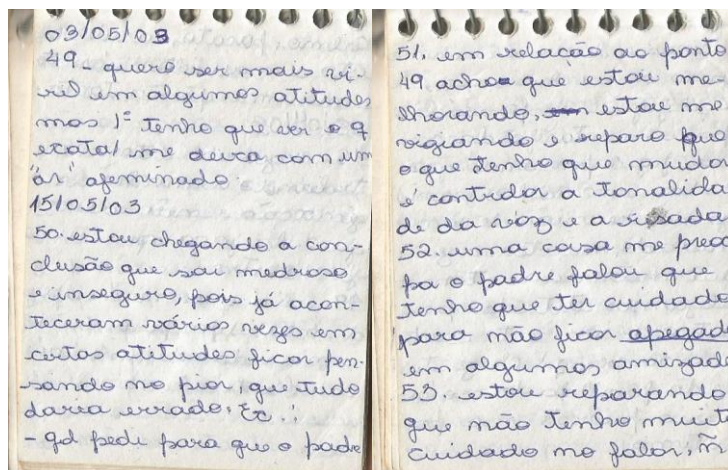 03/05/03
49 - quero ser mais vi-
ril em algumas atitudes
mas 1º tenho que ver o q
exata/ me deixa com um
"ar" afeminado.
15/05/03
50. estou chegando a con-
clusão que sou medroso
e inseguro, pois já acon-
teceram vários vezes em
certas atitudes ficar pen-
sando no pior, que tudo
daria errado. Ex.:
- qd pedi para que o padre
51. em relação ao ponto
49 acho que estou me
lhorando, estou me
vigiando e reparo que
o que tenho que muda
é controlar a tonalida
de da voz e a risada
52. uma coisa me preoc
pa o padre falou que
tenho que ter cuidado
para não ficar apegad
em algumas amizade
53. estou reparando
que não tenho muit
cuidado no falar, ñ